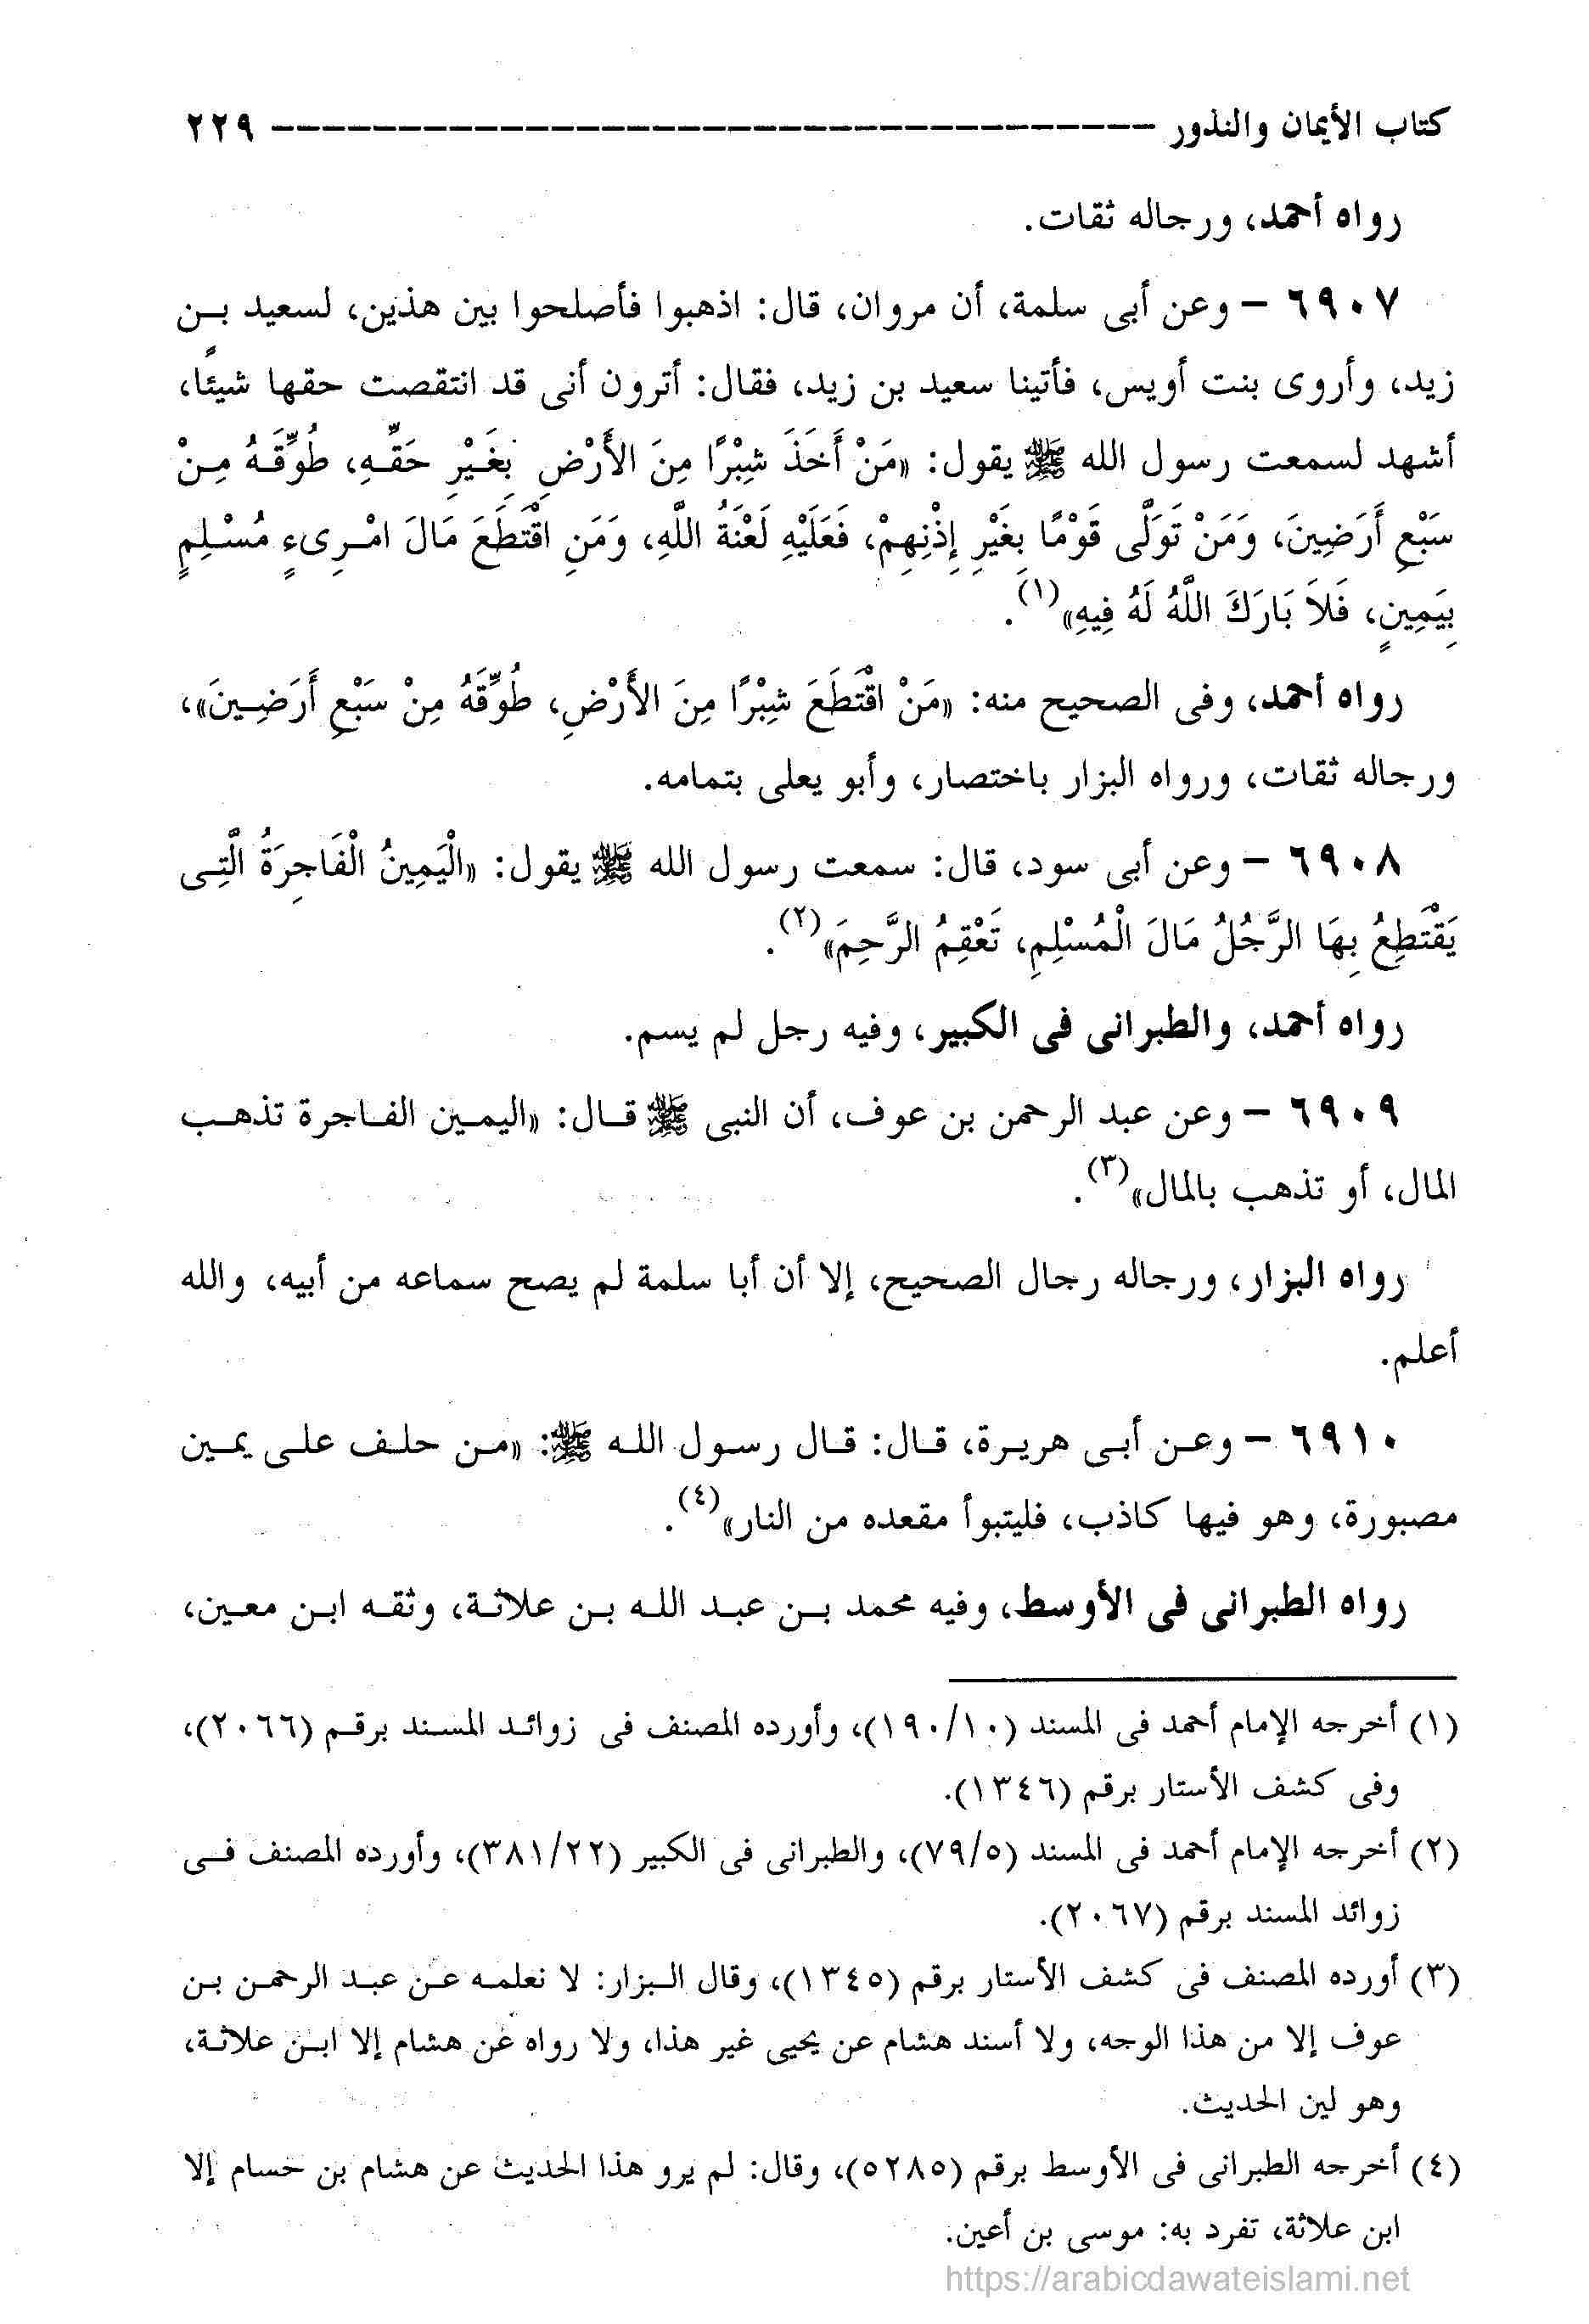 كتاب الأيمان والنذور ----------------------------------- ٢٢٩
رواه أحمد، ورجاله ثقات.
٦٩٠٧ - وعن أبى سلمة، أن مروان، قال: اذهبوا فأصلحوا بين هذين، لسعيد بـن
زيد، وأروى بنت أويس، فأتينا سعيد بن زيد، فقال: أترون أنى قد انتقصت حقها شيئًا،
أشهد لسمعت رسول الله ﷺ يقول: «مَنْ أَخَذَ شِبْرًا مِنَ الأَرْضِ بِغَيْرِ حَقِّهِ، طُوِّقَهُ مِنْ
سَبْعِ أَرَضِينَ، وَمَنْ تَوَلَّى قَوْمًا بِغَيْرِ إِذْنِهِمْ، فَعَلَيْهِ لَعْنَةُ اللَّهِ، وَمَنِ اقْتَطَعَ مَالَ امْرِىءٍ مُسْلِمٍ
بِيَمِينٍ، فَلاَ بَارَكَ اللَّهُ لَهُ فِيهِ»(١).
رواه أحمد، وفى الصحيح منه: «مَنْ اقْتَطَعَ شِبْرًا مِنَ الأَرْضِ، طُوِّقَهُ مِنْ سَبْعِ أَرَضِينَ»،
ورجاله ثقات، ورواه البزار باختصار، وأبو يعلى بتمامه.
٦٩٠٨ - وعن أبى سود، قال: سمعت رسول الله ﷺ يقول: «الْيَمِينُ الْفَاجِرَةُ الَّتِى
يَقْتَطِعُ بِهَا الرَّجُلُ مَالَ الْمُسْلِمِ، تَعْقِمُ الرَّحِمَ»(٢).
رواه أحمد، والطبرانى فى الكبير، وفيه رجل لم يسم.
٦٩٠٩ - وعن عبد الرحمن بن عوف، أن النبى ﷺ قال: «اليمين الفاجرة تذهب
المال، أو تذهب بالمال»(٣).
رواه البزار، ورجاله رجال الصحيح، إلا أن أبا سلمة لم يصح سماعه من أبيه، والله
أعلم.
٦٩١٠ - وعن أبى هريرة، قال: قال رسول الله ﷺ: «من حلف على يمين
مصبورة، وهو فيها كاذب، فليتبوأ مقعده من النار»(٤).
رواه الطبرانى فى الأوسط، وفيه محمد بن عبد الله بن علاثة، وثقه ابن معين،
(١) أخرجه الإمام أحمد فى المسند (١٩٠/١٠)، وأورده المصنف فى زوائد المسند برقم (٢٠٦٦)،
وفى كشف الأستار برقم (١٣٤٦).
(٢) أخرجه الإمام أحمد فى المسند (٧٩/٥)، والطبرانى فى الكبير (٣٨١/٢٢)، وأورده المصنف فى
زوائد المسند برقم (٢٠٦٧).
(٣) أورده المصنف فى كشف الأستار برقم (١٣٤٥)، وقال البزار: لا نعلمه عن عبد الرحمن بن
عوف إلا من هذا الوجه، ولا أسند هشام عن يحيى غير هذا، ولا رواه عن هشام إلا ابن علاثة،
وهو لين الحديث.
(٤) أخرجه الطبرانى فى الأوسط برقم (٥٢٨٥)، وقال: لم يرو هذا الحديث عن هشام بن حسام إلا
ابن علاثة، تفرد به: موسى بن أعين.
https://arabicdawateislami.net